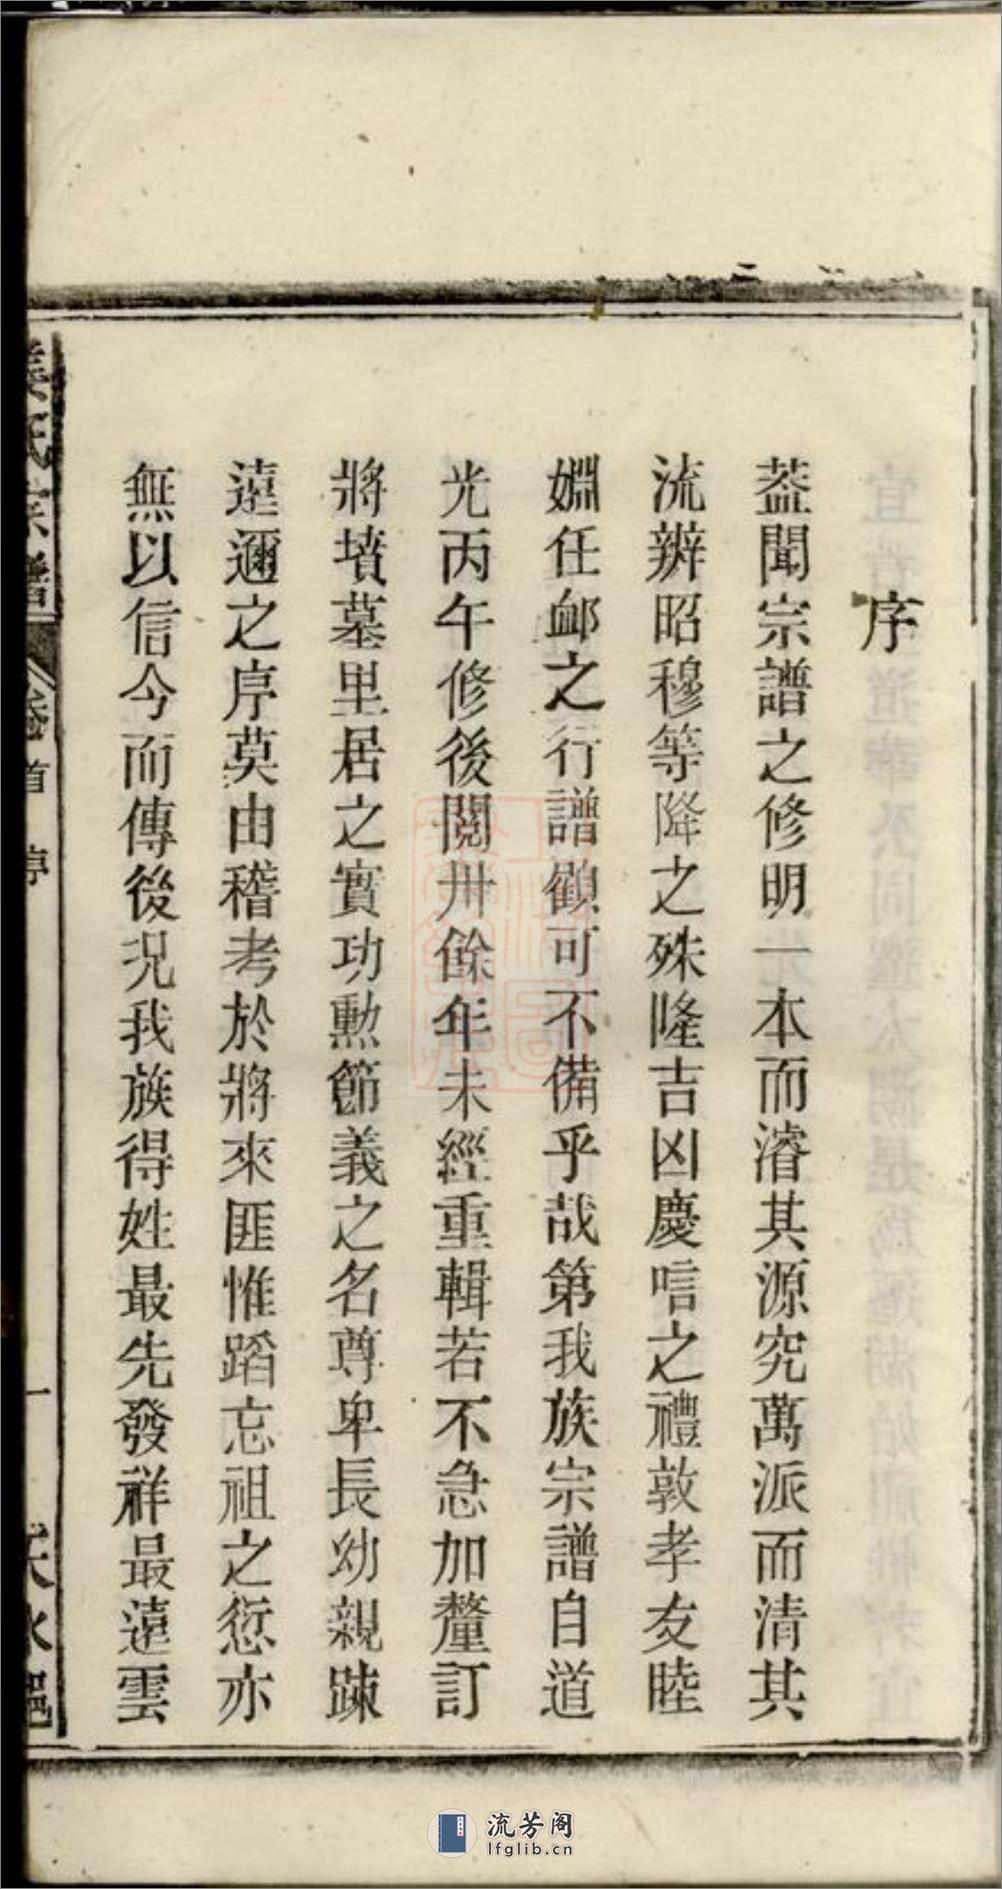 序
葢聞宗譜之修明一本而濬其源究萬派而清其
流辨昭穆等降之殊隆吉凶慶唁之禮敦孝友睦
婣任䘏之行譜顧可不備乎哉第我族宗譜自道
光丙午修後閱卅餘年未經重輯若不急加釐訂
將墳墓里居之實功勲節義之名尊卑長幼親踈
遠邇之序莫由稽考於將來匪惟蹈忘祖之愆亦
無以信今而傳後况我族得姓最先發祥最遠雲
姜氏宗譜
卷首 序
一
天水郡
流芳阁
lfglib.cn